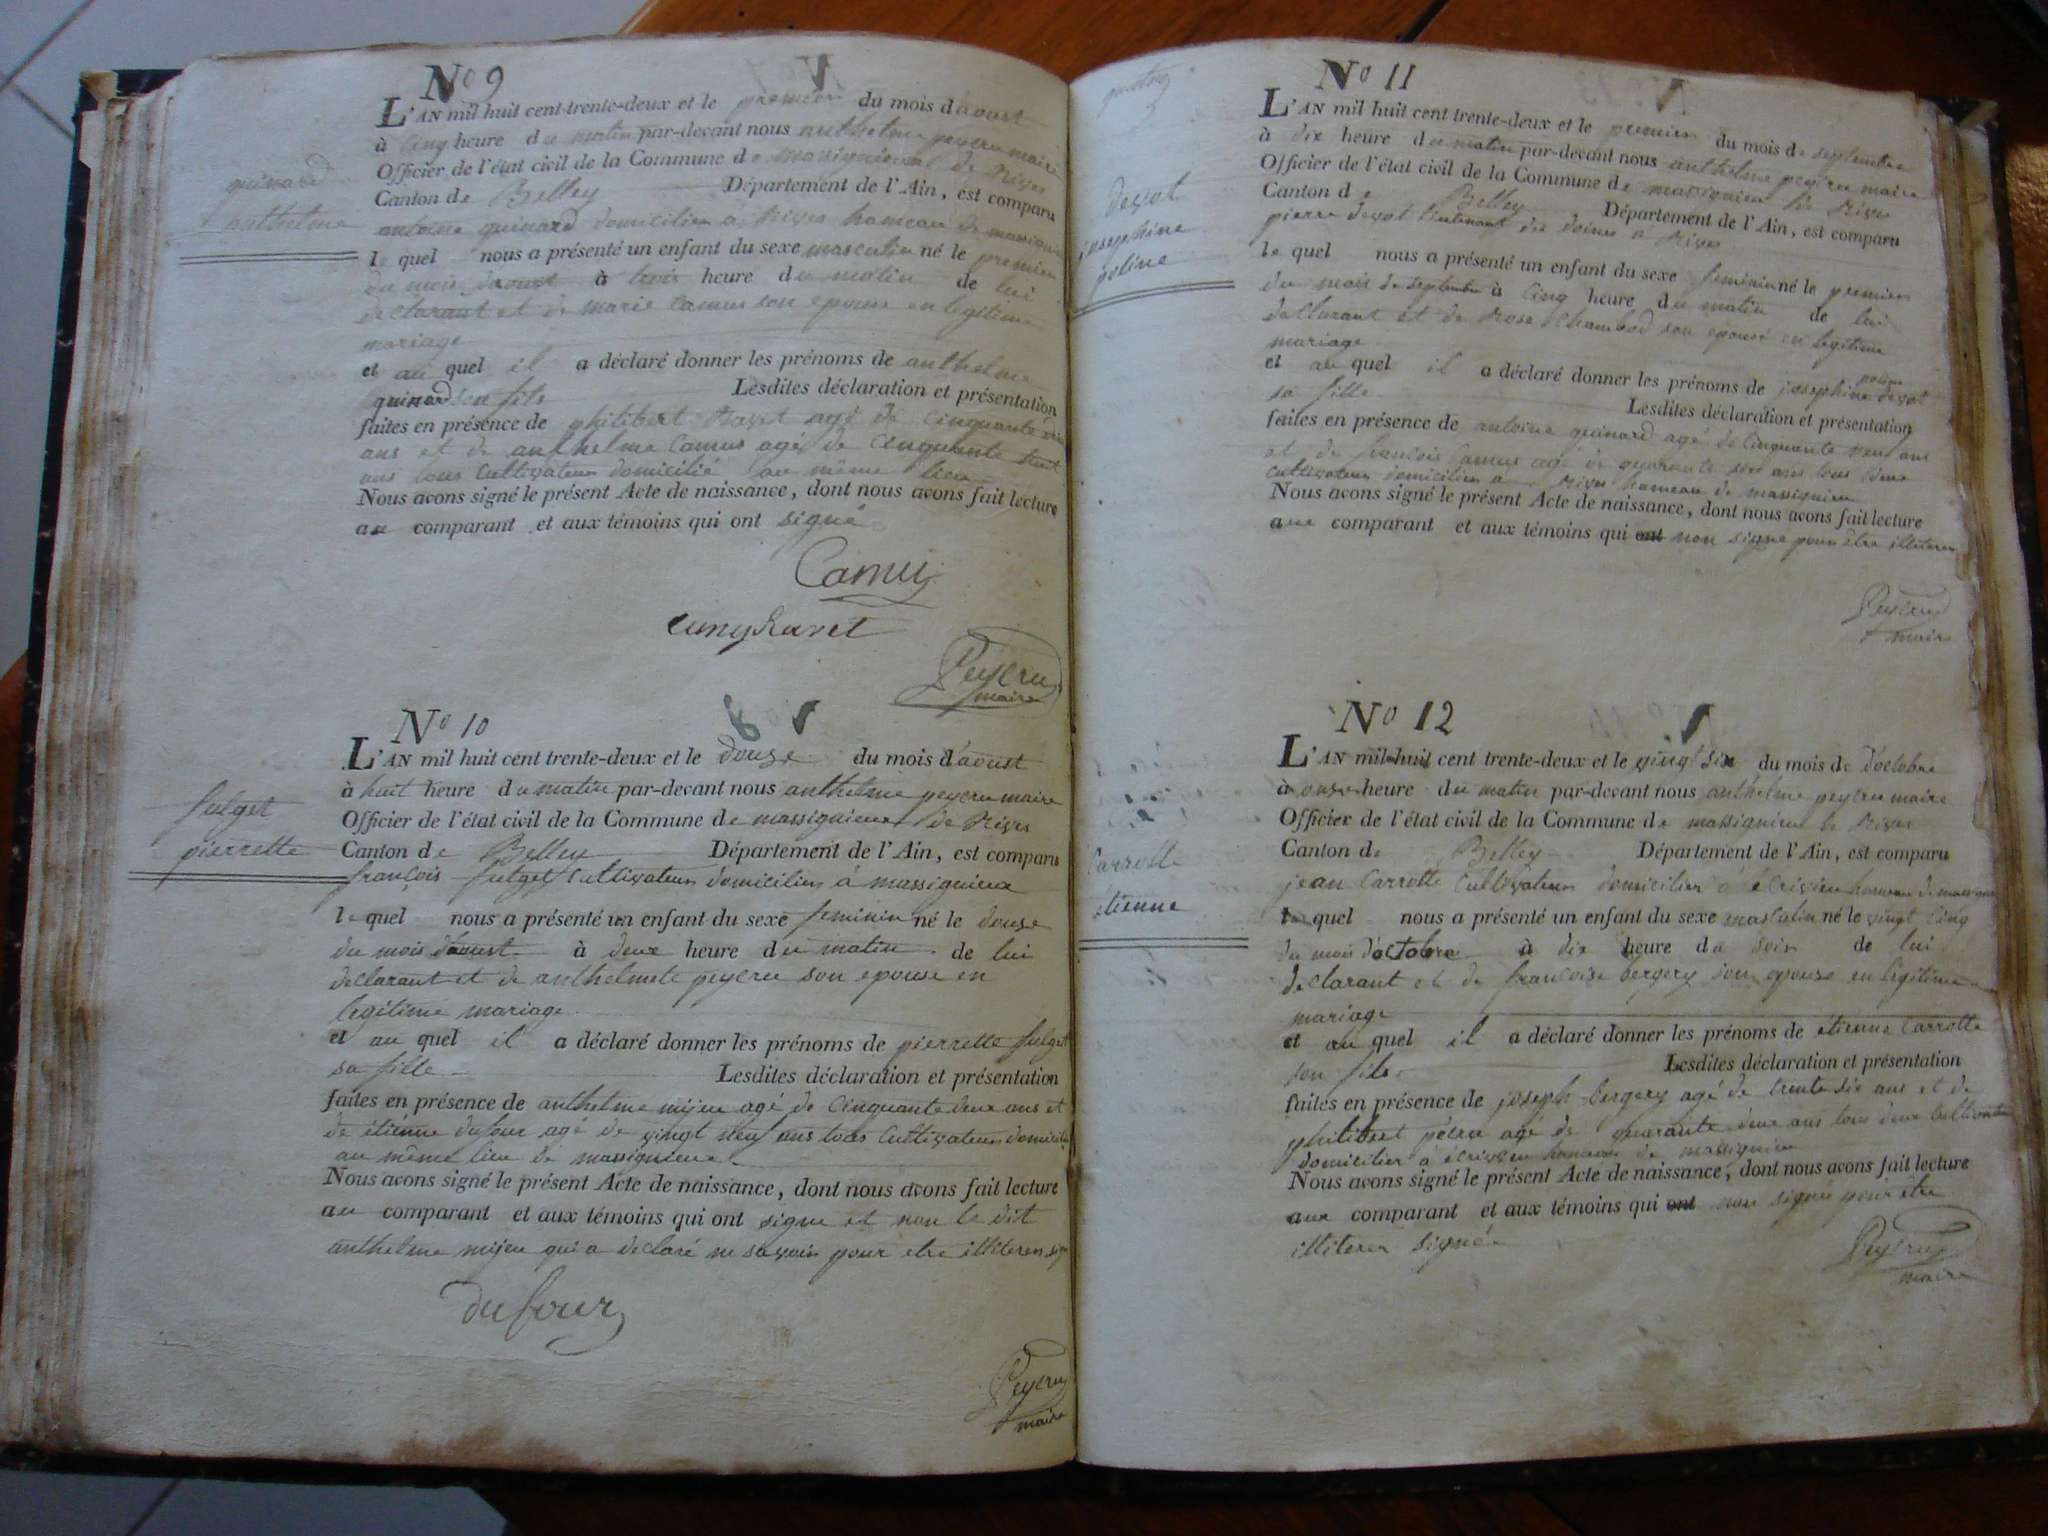 No 9
L'AN mil huit cent trente-deux et le premier du mois d'aoust
à cinq heure du matin par-devant nous anthelme peyeru maire
Officier de l'état civil de la Commune de massignieux de Rives
Canton de Belley Département de l'Ain, est comparu
antoine quinard domicilier a Rives hameau de massignieu
quinard
anthelme
le quel nous a présenté un enfant du sexe masculin né le premier
du mois daoust à trois heure du matin de lui
declarant et de marie Camus son epouse en legitime
mariage
et au quel il a déclaré donner les prénoms de anthelme
quinard son fils Lesdites déclaration et présentation
faites en présence de philibert Ravet agé de cinquante
ans et de anthelme Camus agé de cinquante huit
ans tous cultivateur domicilié au même lieu
Nous avons signé le présent Acte de naissance, dont nous avons fait lecture
au comparant et aux témoins qui ont signé
Camus
Ravet
Peyeru
maire
No 10
8
L'AN mil huit cent trente-deux et le douze du mois d'aoust
à huit heure du matin par-devant nous anthelme peyeru maire
Officier de l'état civil de la Commune de massignieux de Rives
Canton de Belley Département de l'Ain, est comparu
françois fulget Cultivateur domicilier à massignieux
fulget
pierrette
le quel nous a présenté un enfant du sexe feminin né le douze
du mois daoust à deux heure du matin de lui
declarant et de anthelmete peyeru son epouse en
legitime mariage
et au quel il a déclaré donner les prénoms de pierrette fulget
sa fille Lesdites déclaration et présentation
faites en présence de anthelme mijeu agé de cinquante deux ans et
de étienne dufour agé de vingt neuf ans tous cultivateur domicilié
au même lieu de massignieux
Nous avons signé le présent Acte de naissance, dont nous avons fait lecture
au comparant et aux témoins qui ont signé et non le dit
anthelme mijeu qui a declaré ne savoir pour etre illiteré
dufour
Peyeru
maire
No 11
L'AN mil huit cent trente-deux et le premier du mois de septembre
à dix heure du matin par-devant nous anthelme peyeru maire
Officier de l'état civil de la Commune de massignieu de Rives
Canton de Belley Département de l'Ain, est comparu
pierre devot lieutenant des doines à Rives
devot
josephine
poline
le quel nous a présenté un enfant du sexe feminin né le premier
du mois de septembre à cinq heure du matin de lui
declarant et de Rose Chambod son epouse en legitime
mariage
et au quel il a déclaré donner les prénoms de josephine poline devot
sa fille Lesdites déclaration et présentation
faites en présence de antoine quinard agé de cinquante ans
et de françois Camus agé de quarante ans tous deux
cultivateur domicilier a Rives hameau de massignieu
Nous avons signé le présent Acte de naissance, dont nous avons fait lecture
aux comparant et aux témoins qui ont non signé pour être illiteré
Peyeru
maire
No 12
L'AN mil huit cent trente-deux et le vingt six du mois de d'octobre
à onze heure du matin par-devant nous anthelme peyeru maire
Officier de l'état civil de la Commune de massignieu de Rives
Canton de Belley Département de l'Ain, est comparu
jean Carrotte Cultivateur domicilier à écrivieu hameau de massignieu
Carrotte
étienne
le quel nous a présenté un enfant du sexe masculin né le vingt cinq
du mois d'octobre à dix heure du soir de lui
declarant et de françoise bergery son epouse en legitime
mariage
et au quel il a déclaré donner les prénoms de étienne Carrotte
son fils Lesdites déclaration et présentation
faites en présence de joseph bergery agé de trente six ans et de
philibert peeru agé de quarante deux ans tous deux cultivateur
domicilier à écrivieu hameau de massignieu
Nous avons signé le présent Acte de naissance, dont nous avons fait lecture
aux comparant et aux témoins qui ont non signé pour être
illiteré signé
Peyeru
maire